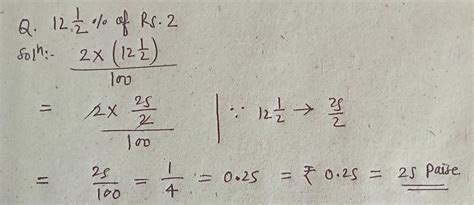 Q. 12 1/2 % of Rs. 2
Solⁿ:- 2 x (12 1/2) / 100
= 2 x 25/2 / 100 | ∵ 12 1/2 → 25/2
= 25/100 = 1/4 = 0.25 = ₹ 0.25 = 25 Paise